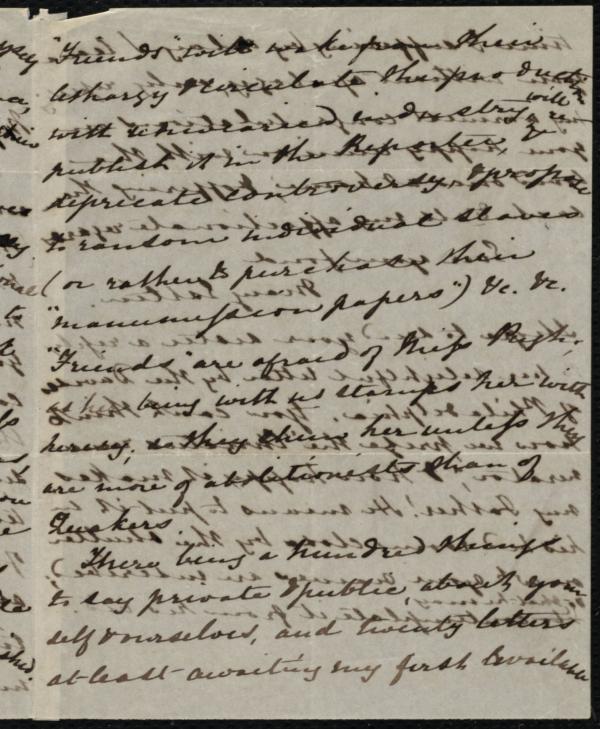 "Friends" will wake from their
lethargy & circulate the production
with unwearied industry, will
publish it in the Reporter, &
deprecate controversy & propose
to ransom individual slaves
(or rather to purchase their
"manumission papers") &c. &c.
"Friends" are afraid of Miss Pugh;
her being with us stamps her with
heresy, so they shun her unless they
are more of abolitionists than of
Quakers.
There being a hundred things
to say private & public, about your-
self & ourselves, and twenty letters
at least awaiting my first available